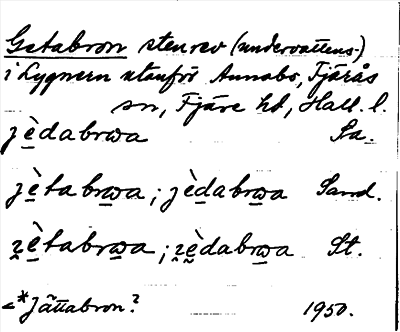 Getabron stenrev (undervattens-)
i Lygnern utanför Annabo, Fjärås
sn, Fjäre hd, Hall. l.
jè̱dabrωa Sa.
jè̱tabrω̱a; jèḏabrω̱a Sand.
ʒ̭è̱tabrω̱a; ʒ̭è̱dabrω̱a St.
<*Jättabron? 1950.